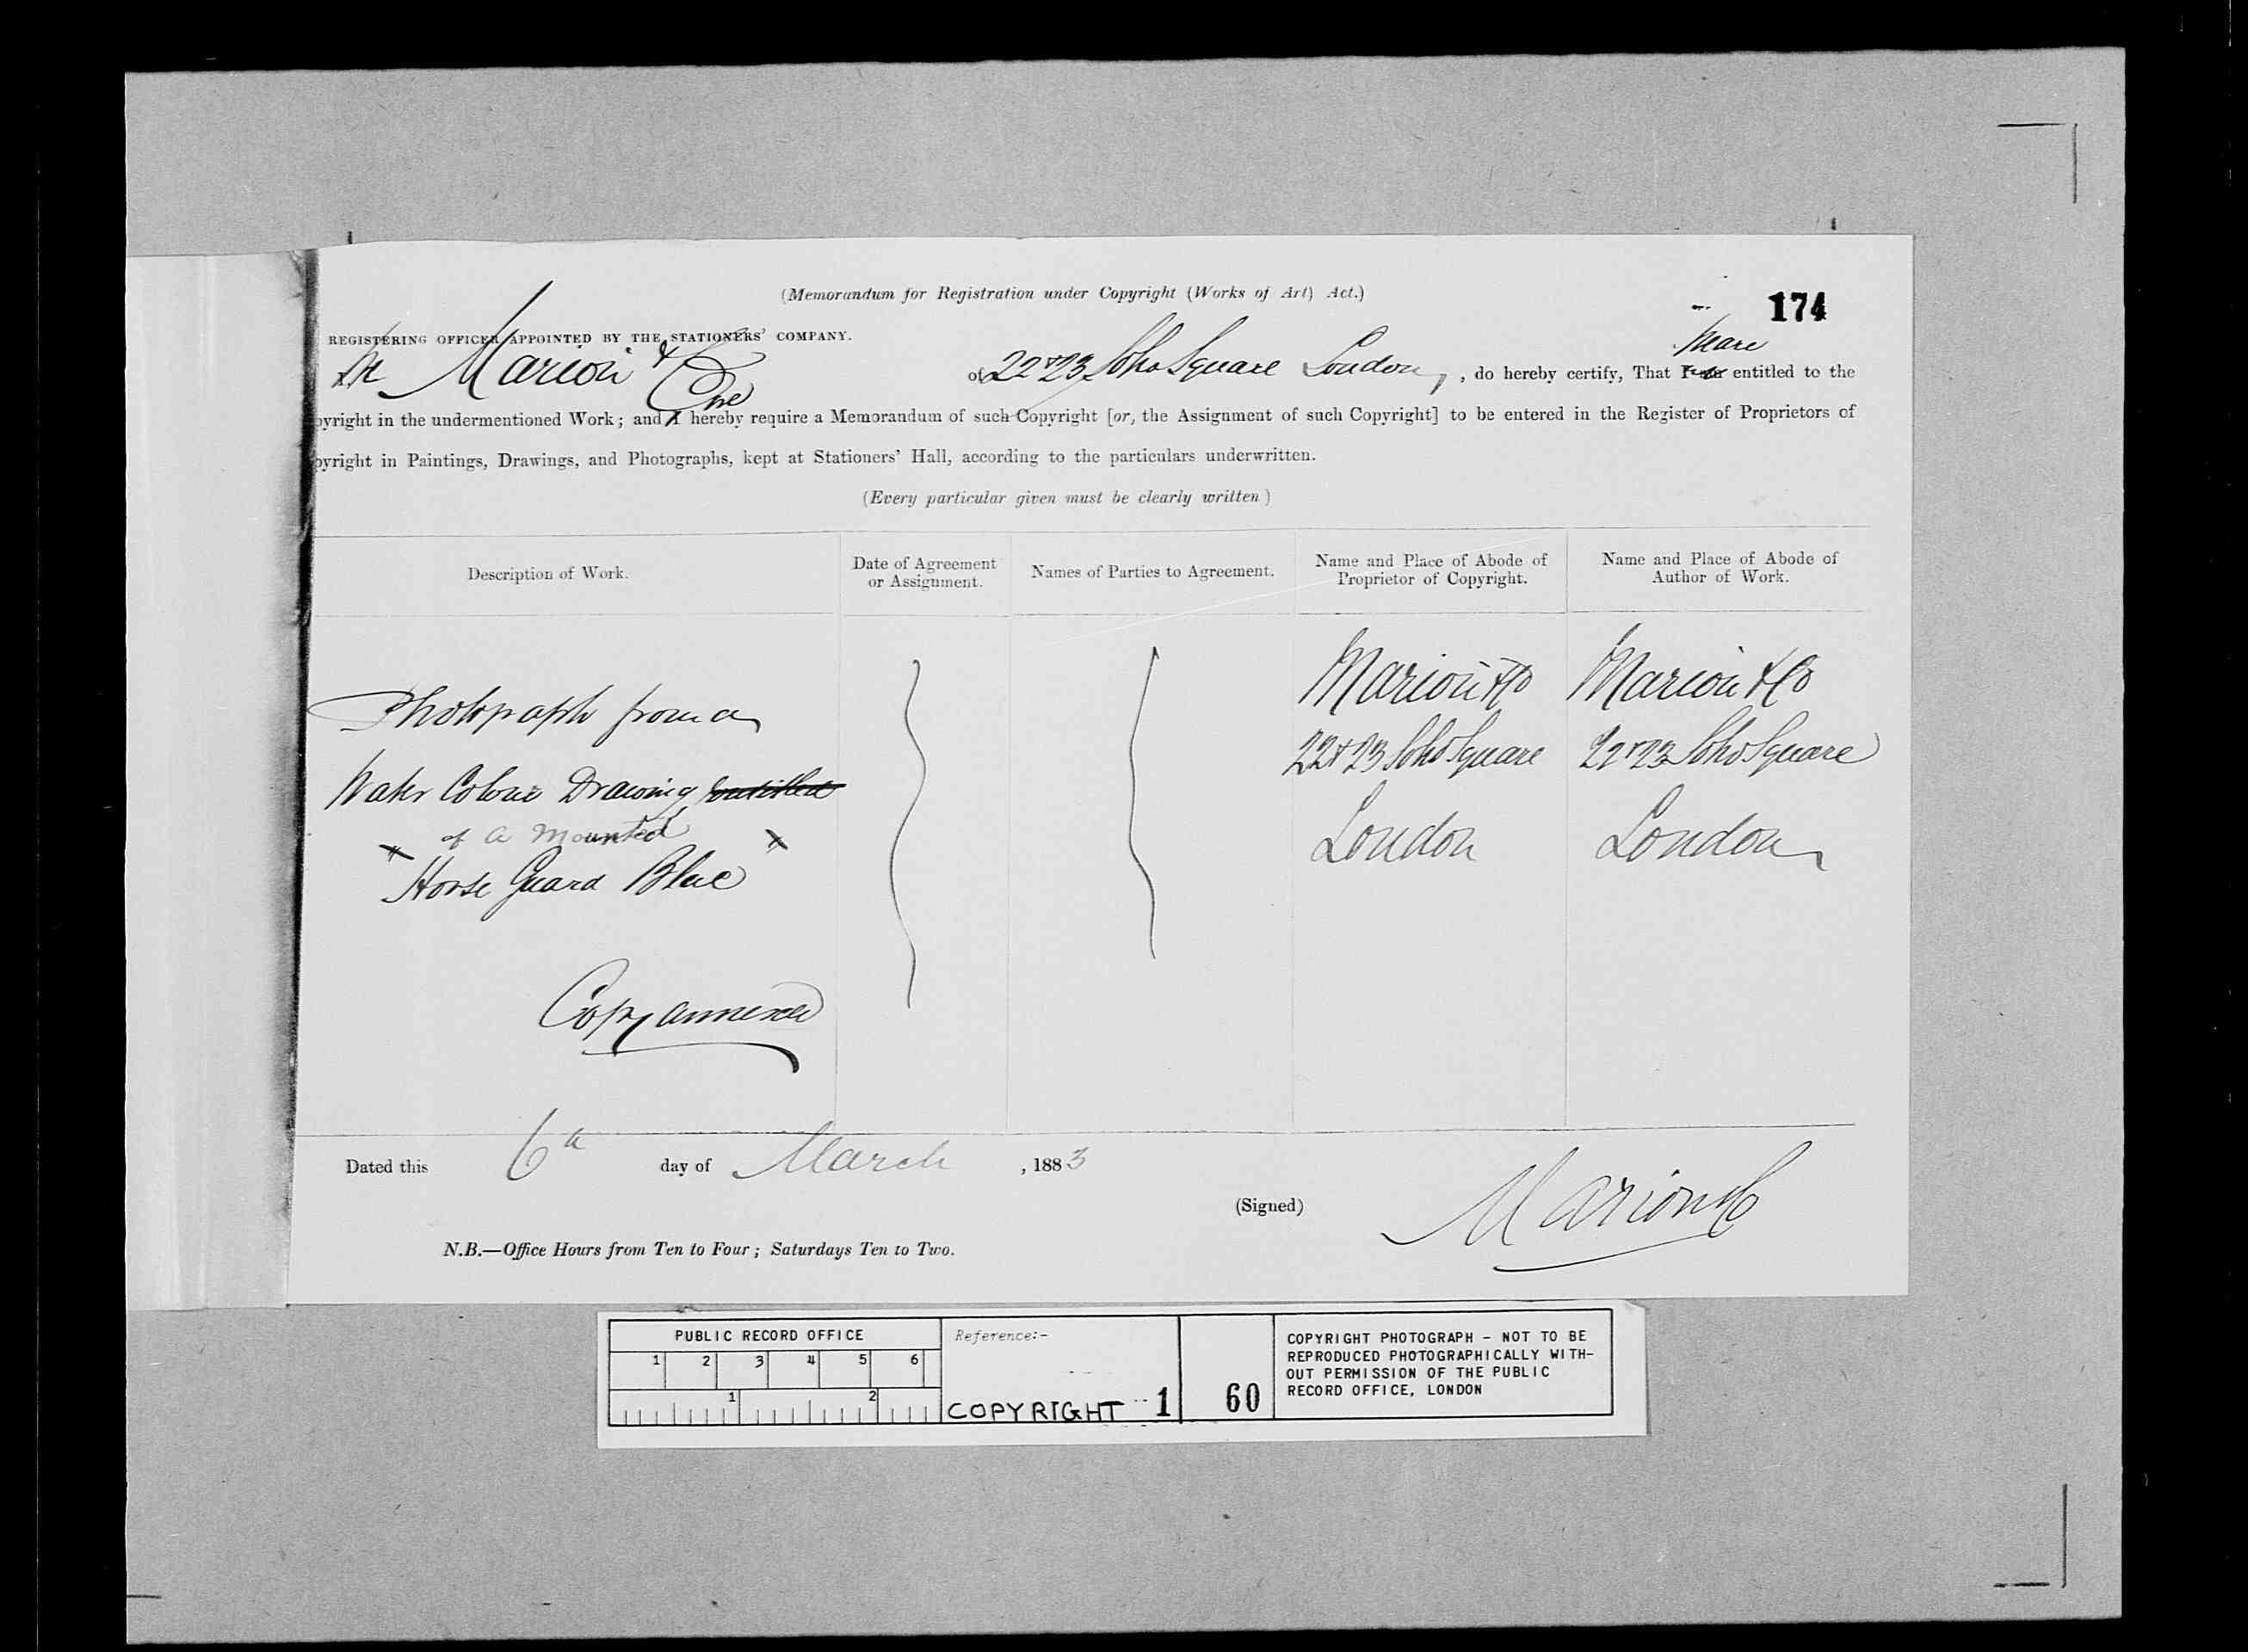 (Memorandum for Registration under Copyright (Works of Art) Act.)
174
REGISTERING OFFICER APPOINTED BY THE STATIONERS' COMPANY.
We Marion & Co of 22 & 23 Soho Square London, , do hereby certify, That We are entitled to the
We
pyright in the undermentioned Work; and I hereby require a Memorandum of such Copyright [or, the Assignment of such Copyright] to be entered in the Register of Proprietors of
pyright in Paintings, Drawings, and Photographs, kept at Stationers' Hall, according to the particulars underwritten.
(Every particular given must be clearly written)
Description of Work.
Date of Agreement
or Assignment.
Names of Parties to Agreement.
Name and Place of Abode of
Proprietor of Copyright.
Name and Place of Abode of
Author of Work.
Photograph from a
Water Colour Drawing entitled
of a mounted
" Horse Guard Blue "
Copy annexed
Marion & Co
22 & 23 Soho Square
London
Marion & Co
22 & 23 Soho Square
London
Dated this 6th day of March , 1883
(Signed) Marion & Co
N.B.—Office Hours from Ten to Four; Saturdays Ten to Two.
PUBLIC RECORD OFFICE
1 2 3 4 5 6
1 2
Reference:-
COPYRIGHT 1 60
COPYRIGHT PHOTOGRAPH - NOT TO BE
REPRODUCED PHOTOGRAPHICALLY WITH-
OUT PERMISSION OF THE PUBLIC
RECORD OFFICE, LONDON